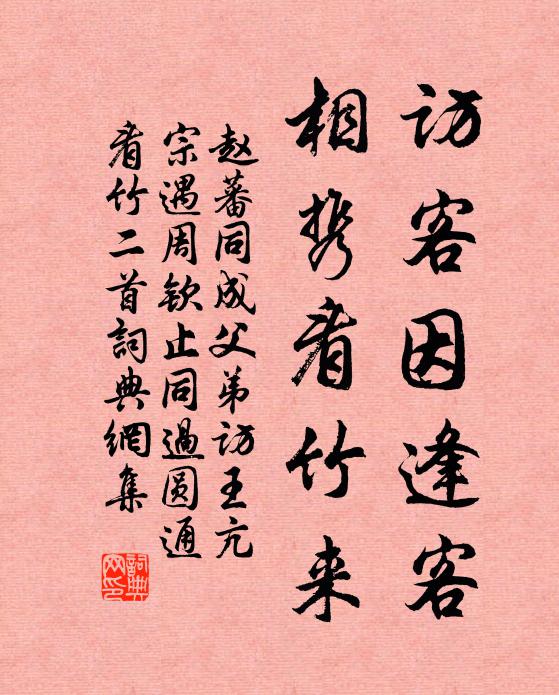 访客因逢客
相携看竹来
赵蕃同成父弟访王亢
宗遇周钦止同過圆通
看竹二首詞典網集
詞典
网印